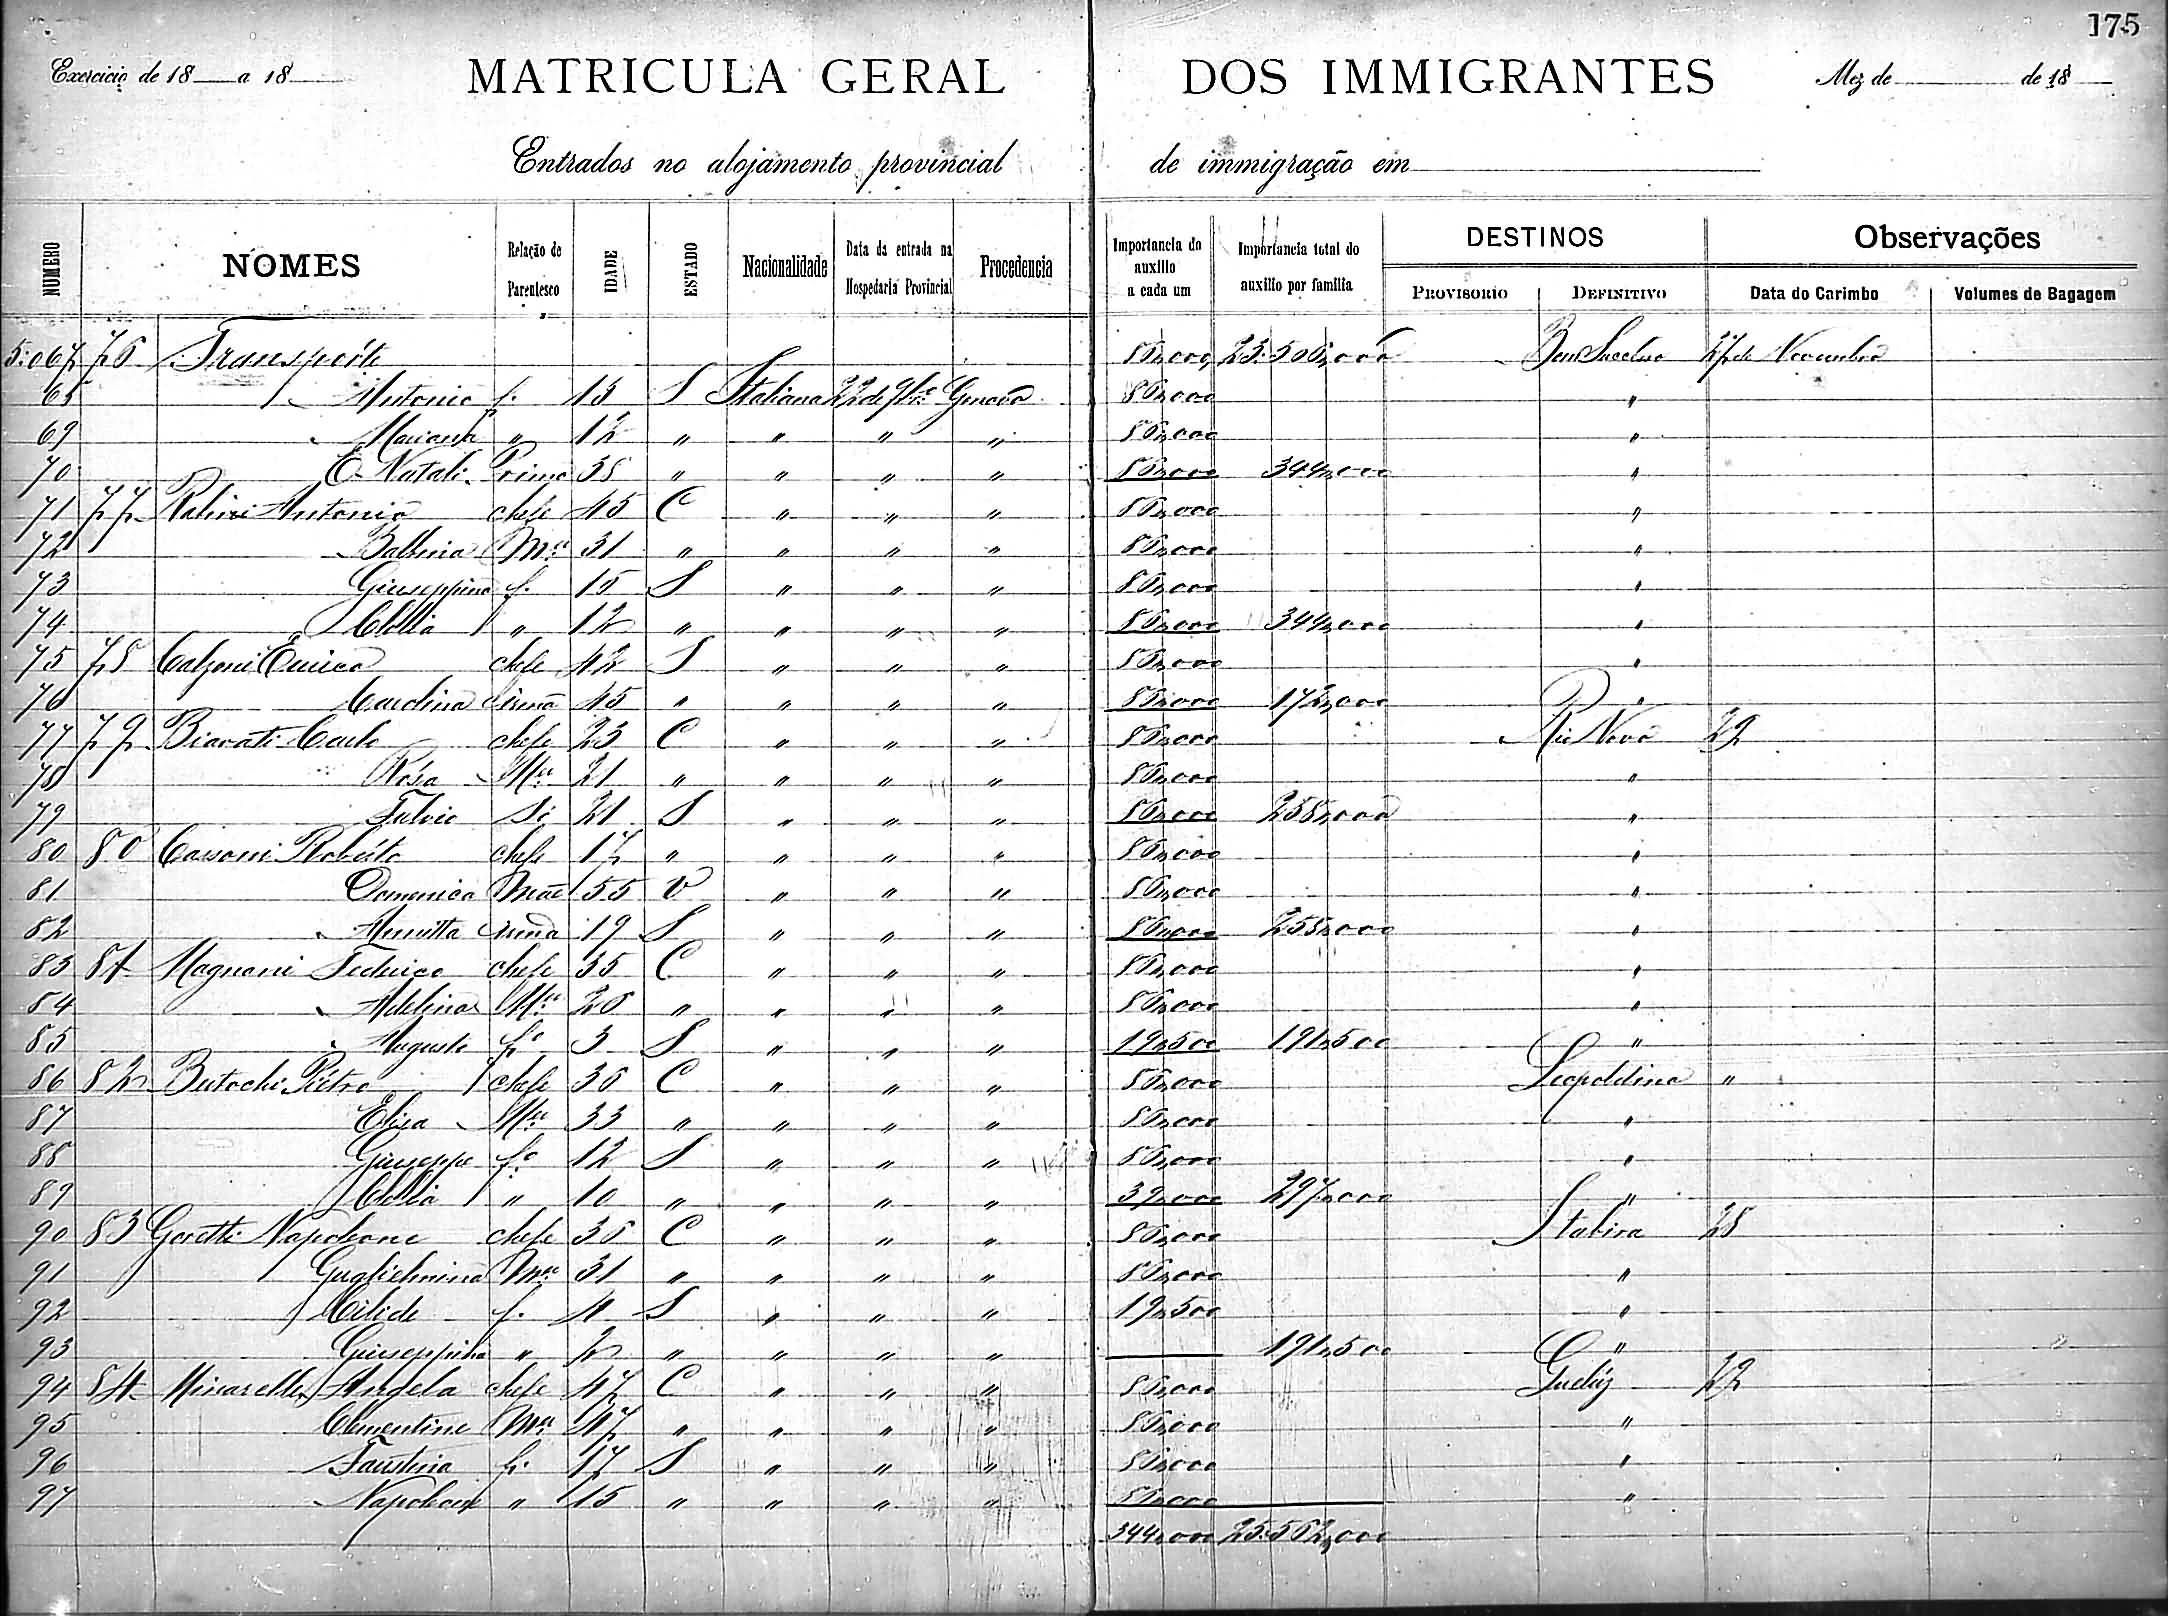 175
Exercicio de 18 a 18 MATRICULA GERAL DOS IMMIGRANTES Mez de de 18
Entrados no alojamento provincial de immigração em
NUMERO NOMES Relação de Parentesco IDADE ESTADO Nacionalidade Data da entrada na Hospedaria Provincial Procedencia Importancia do auxilio a cada um Importancia total do auxilio por familia DESTINOS PROVISORIO DEFINITIVO Observações Data do Carimbo Volumes de Bagagem
5:067 76 Transporte 86,000 23:506,000 Bom Successo 27 de Novembro
68 Antonio f. 15 S Italiana 22 de 9bro Genova 86,000 "
69 " 12 " " " " 86,000 "
70 Natali Primo 38 " " " " 86,000 344,000 "
71 77 Antonio chefe 45 C " " " 86,000 "
72 Mer 31 " " " " 86,000 "
73 Giuseppina f. 15 S " " " 86,000 "
74 Clelia " 12 " " " " 86,000 344,000 "
75 78 Calzoni Enrico chefe 42 S " " " 86,000 "
76 Carolina irmã 45 " " " " 86,000 172,000 "
77 79 Biavati Carlo chefe 23 C " " " 86,000 Rio Novo 29
78 Rosa Mer 21 " " " " 86,000 "
79 Fulvio 21 S " " " 86,000 258,000 "
80 80 Roberto chefe 17 " " " " 86,000 "
81 Domenica Mãe 55 V " " " 86,000 "
82 irmã 19 S " " " 86,000 258,000 "
83 81 Magnani Federico chefe 35 C " " " 86,000 "
84 Adelina Mer 26 " " " " 86,000 "
85 Augusto fo 3 S " " " 19,500 191,500 "
86 82 Pietro chefe 36 C " " " 86,000 Leopoldina "
87 Elisa Mer 33 " " " " 86,000 "
88 Giuseppe fo 12 S " " " 86,000 "
89 Clelia " 10 " " " " 39,000 297,000 "
90 83 Goretti Napoleone chefe 36 C " " " 86,000 Itabira 28
91 Guglielmina Mer 31 " " " " 86,000 "
92 f. 4 S " " " 19,500 "
93 Giuseppina " 2 " " " " 191,500 "
94 84 Minarelli Angela chefe 47 C " " " 86,000 29
95 Clementine Mer 47 " " " " 86,000 "
96 Faustina f. 17 S " " " 86,000 "
97 Napoleone " 15 " " " " 86,000 "
344,000 25:562,000